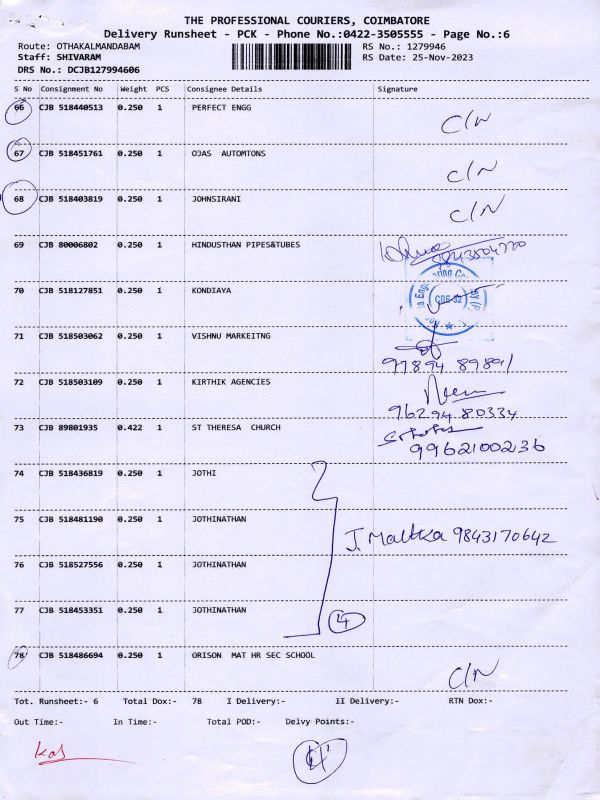 THE PROFESSIONAL COURIERS, COIMBATORE
Delivery Runsheet - PCK - Phone No.:0422-3505555 - Page No.:6
Route: OTHAKALMANDABAM RS No.: 1279946
Staff: SHIVARAM RS Date: 25-Nov-2023
DRS No.: DCJB127994606
S No Consignment No Weight PCS Consignee Details Signature
66 CJB 518440513 0.250 1 PERFECT ENGG C/N
67 CJB 518451761 0.250 1 OJAS AUTOMTONS C/N
68 CJB 518403819 0.250 1 JOHNSIRANI C/N
69 CJB 80006802 0.250 1 HINDUSTHAN PIPES&TUBES
70 CJB 518127851 0.250 1 KONDIAYA CBE-32
71 CJB 518503062 0.250 1 VISHNU MARKEITNG
97894 89891
72 CJB 518503109 0.250 1 KIRTHIK AGENCIES
96294 80334
73 CJB 89801935 0.422 1 ST THERESA CHURCH
9962100236
74 CJB 518436819 0.250 1 JOTHI
75 CJB 518481190 0.250 1 JOTHINATHAN
J. 9843170642
76 CJB 518527556 0.250 1 JOTHINATHAN
77 CJB 518453351 0.250 1 JOTHINATHAN
4
78 CJB 518486694 0.250 1 ORISON MAT HR SEC SCHOOL C/N
Tot. Runsheet:- 6 Total Dox:- 78 I Delivery:- II Delivery:- RTN Dox:-
Out Time:- In Time:- Total POD:- Delvy Points:-